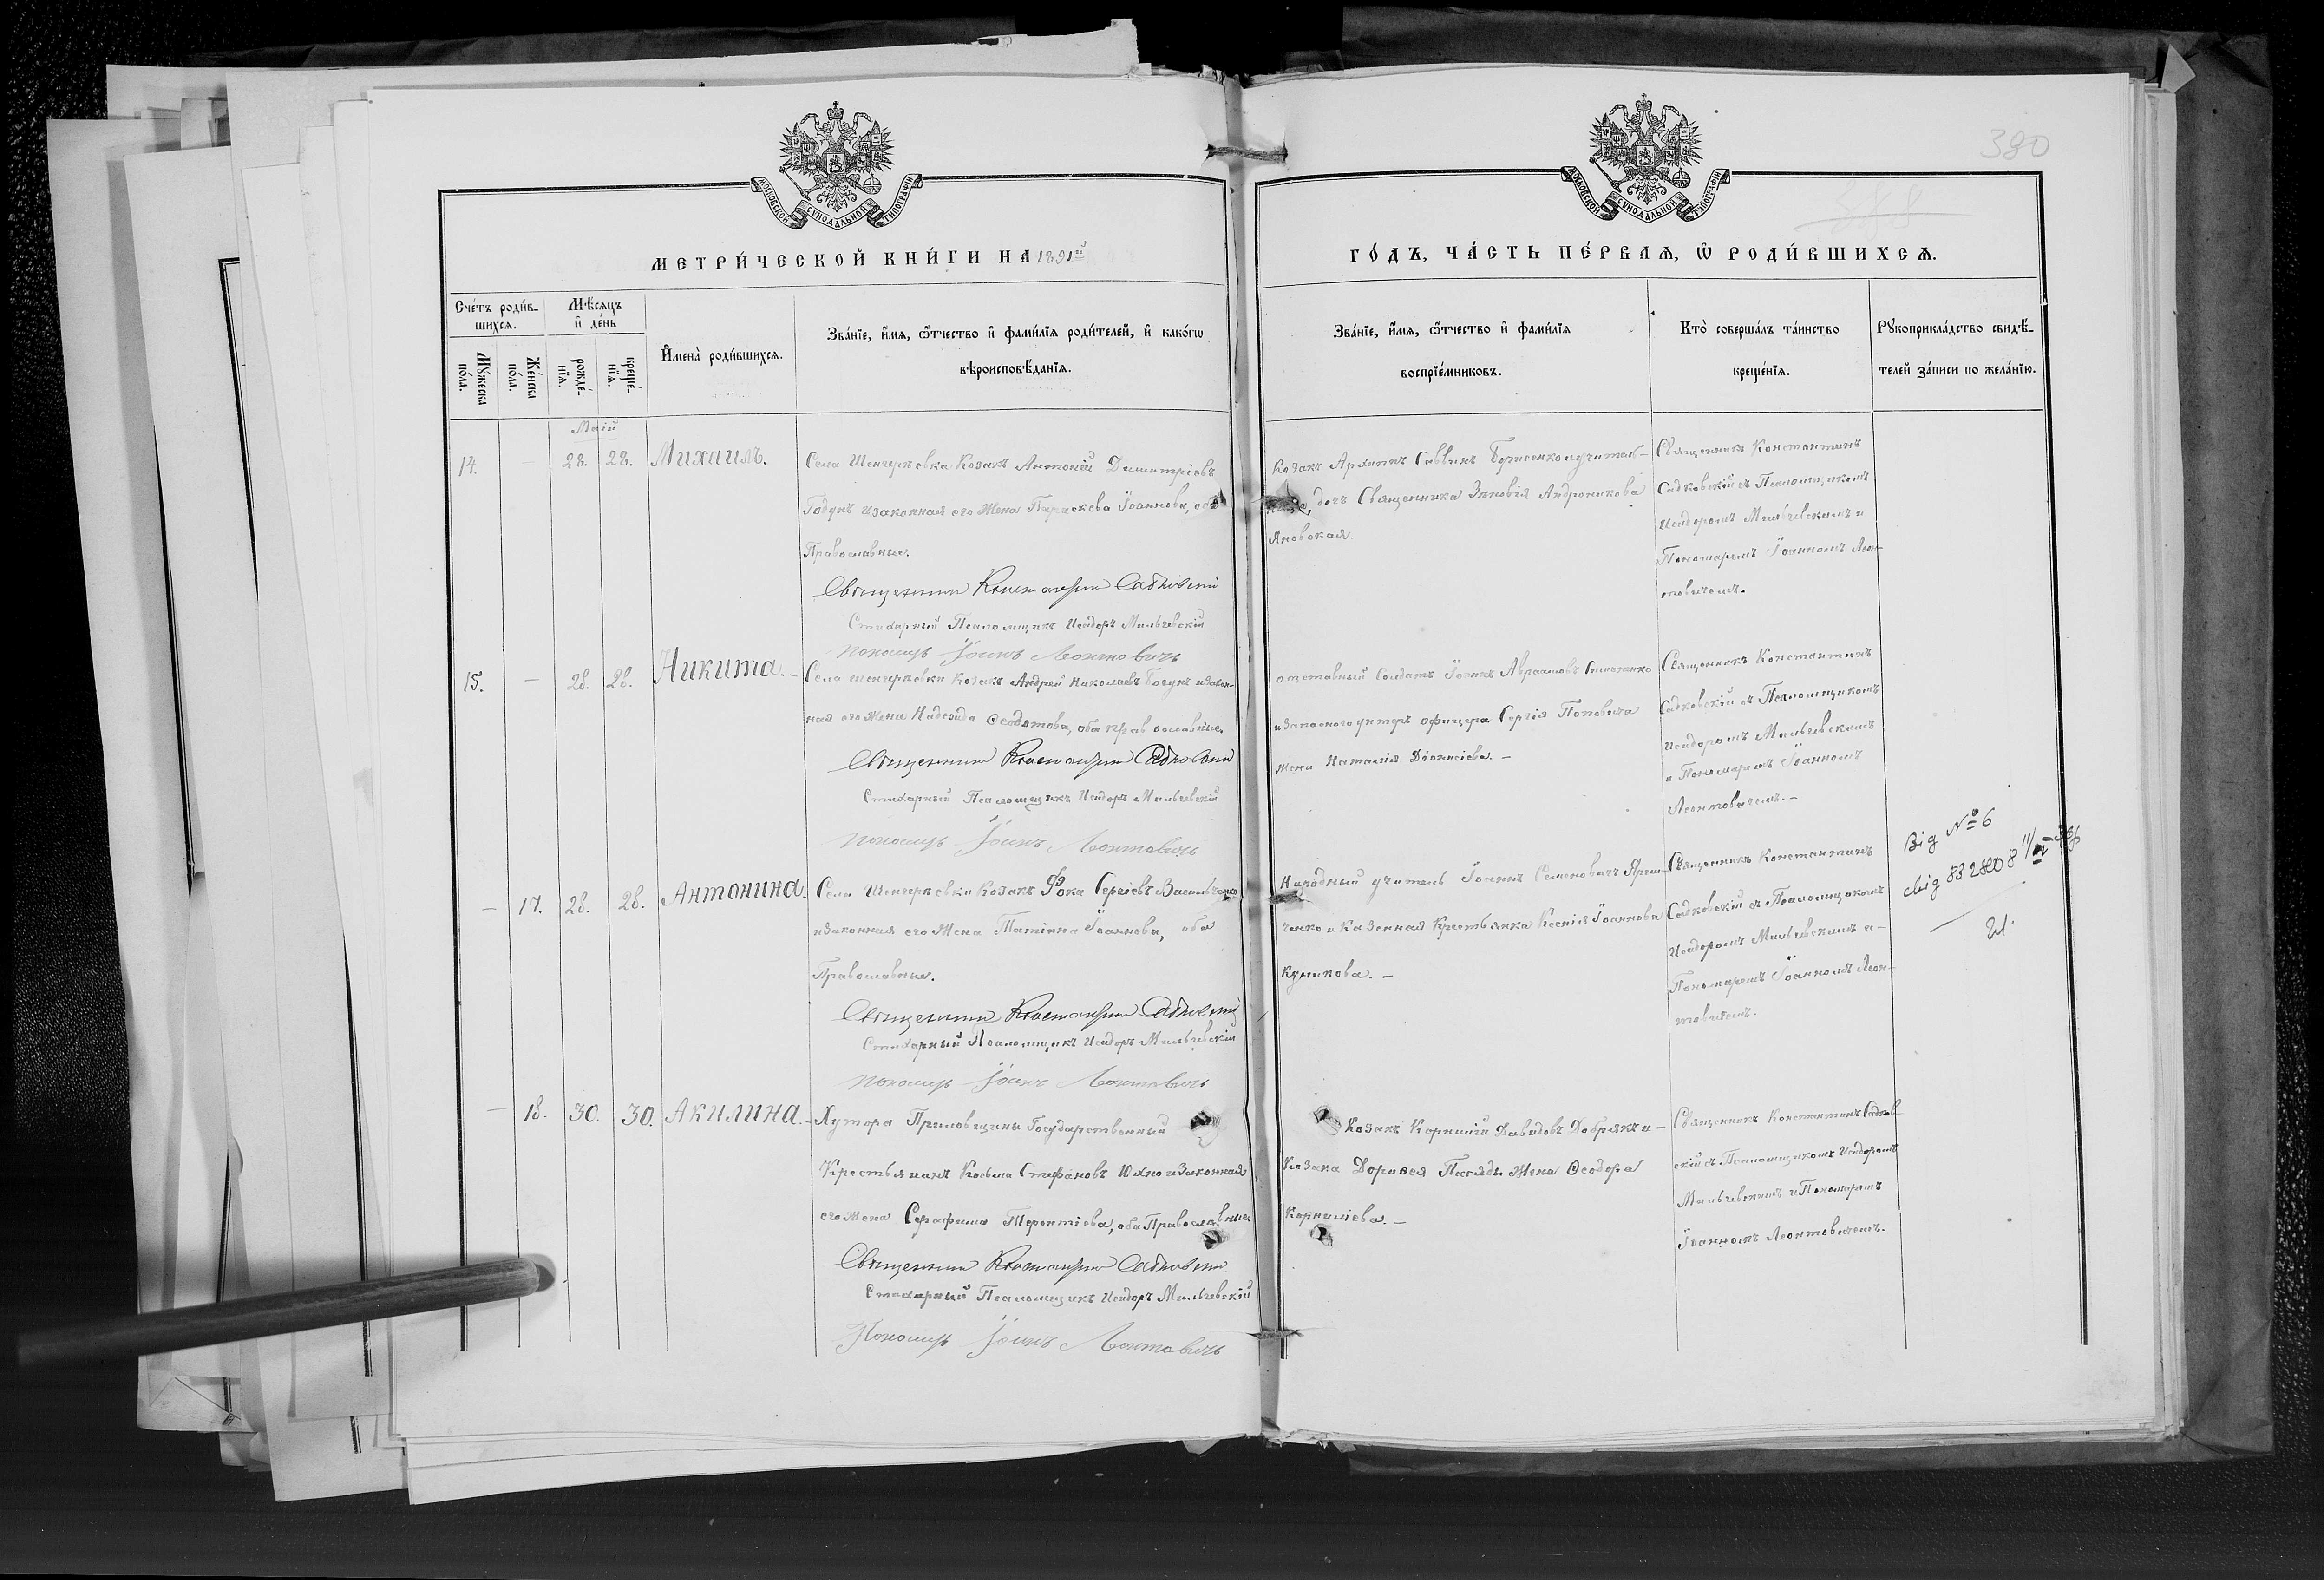 380
МОСКОВСКОЙ СУНОДАЛЬНОЙ ТИПОГРАФІИ
МОСКОВСКОЙ СУНОДАЛЬНОЙ ТИПОГРАФІИ
МЕТРИ́ЧЕСКОЙ КНИ́ГИ НА 1891й
ГО́ДЪ, ЧА́СТЬ ПЕ́РВАЯ, Ѡ РОДИ́ВШИХСЯ.
Сче́тъ роди́в-
шихся.
Мѣ́сяцъ
и де́нь
Мꙋ́жеска по́ла.
Же́нска по́ла.
рожде́-нїя.
креще́-нїя.
Имена̀ роди́вшихся.
Зва́нїе, и́мя, ѻ́тчество и фами́лїя роди́телей, и како́гѡ
вѣроисповѣ́данїя.
Зва́нїе, и́мя, ѻ́тчество и фами́лїя
воспрїе́мниковъ.
Кто̀ соверша́лъ та́инство
креще́нїя.
Рꙋкоприкла́дство свидѣ́-
телей за́писи по жела́нїю.
Маій
14. — 28. 28. Михаилъ.
Села Шенгерѣевка Козакъ Антоній Димитріевъ
Годунъ и законная его жена Параскева Іоаннова, оба
Православные.
Священникъ Константинъ Садковскій
Стихарный Псаломщикъ Исидоръ Мильчевскій
Пономарь Іоаннъ Леонтовичъ
Козакъ Архипъ Саввинъ
дочь Священника Зиновія Андроникова
Яновская.
Священникъ Константинъ
Садковскій съ Псаломщикомъ
Исидоромъ Мильчевскимъ и
Пономаремъ Іоанномъ Леон-
товичемъ.
15. — 28. 28. Никита. —
Села Козакъ Андрей Николаевъ Богунъ и закон-
ная его жена Надежда Ѳеодотова, оба православные.
Священникъ Константинъ Садковскій
Стихарный Псаломщикъ Исидоръ Мильчевскій
Пономарь Іоаннъ Леонтовичъ
отставный Солдатъ Іоаннъ Авраамовъ
и запаснаго унтеръ офицера Сергія Поповича
жена Наталія Діонисіева. —
Священникъ Константинъ
Садковскій съ Псаломщикомъ
Исидоромъ Мильчевскимъ
и Пономаремъ Іоанномъ
Леонтовичемъ. —
— 17. 28. 28. Антонина.
Села Козакъ Фока Сергіевъ Васильченко
и законная его жена Татіана Іоаннова, оба
Православные.
Священникъ Константинъ Садковскій
Стихарный Псаломщикъ Исидоръ Мильчевскій
Пономарь Іоаннъ Леонтовичъ
Народный учитель Іоаннъ Семеновичъ Яреш-
ченко и Казенная Крестьянка Ксенія Іоаннова
Куликова. —
Священникъ Константинъ
Садковскій съ Псаломщикомъ
Исидоромъ Мильчевскимъ и —
Пономаремъ Іоанномъ Леон-
товичемъ.
Від № 6
— 18. 30. 30. Акилина. —
Хутора Приловщины Государственный
Крестьянинъ Косьма Стефановъ Юхно и законная
его жена Серафима Терентіева, оба Православные
Священникъ Константинъ Садковскій
Стихарный Псаломщикъ Исидоръ Мильчевскій
Пономарь Іоаннъ Леонтовичъ
Козакъ Корнилій Давидовъ Добрякъ и —
Козака Дороѳея жена Ѳеодора
Корниліева. —
Священникъ Константинъ Садков
скій съ Псаломщикомъ Исидоромъ
Мильчевскимъ и Пономаремъ
Іоанномъ Леонтовичемъ.